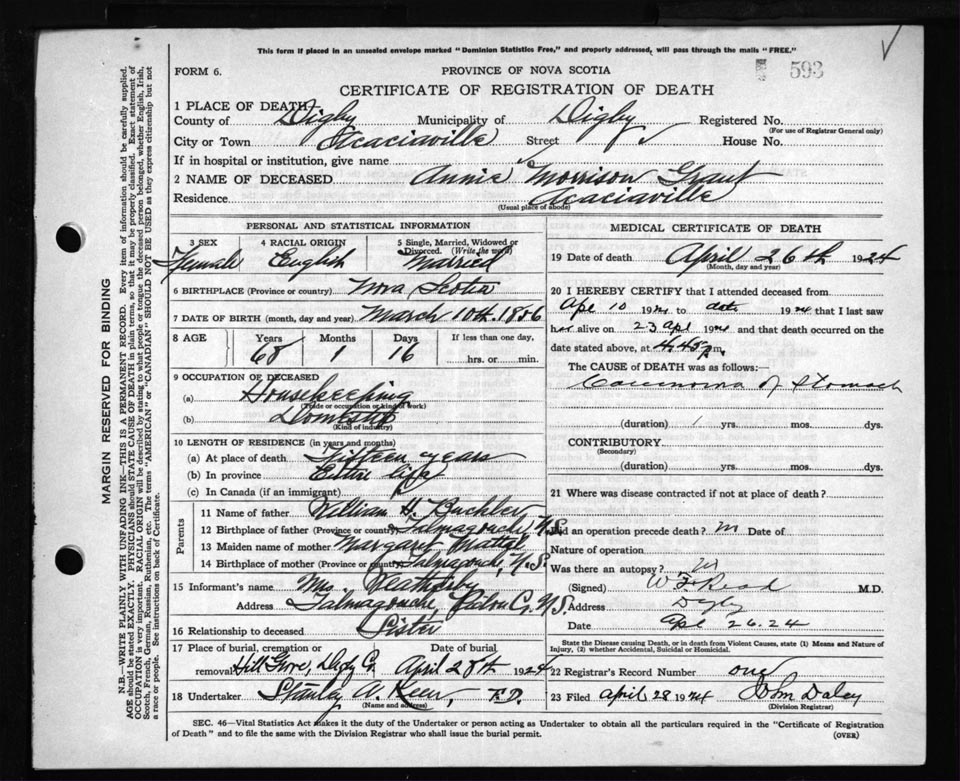 This form if placed in an unsealed envelope marked "Dominion Statistics Free," and properly addressed, will pass through the mails "FREE."
FORM 6.
PROVINCE OF NOVA SCOTIA
593
CERTIFICATE OF REGISTRATION OF DEATH
1 PLACE OF DEATH
County of Digby Municipality of Digby Registered No.
(For use of Registrar General only)
City or Town Acaciaville Street House No.
If in hospital or institution, give name
2 NAME OF DECEASED Annie Morrison Grant
Residence Acaciaville
(Usual place of abode)
PERSONAL AND STATISTICAL INFORMATION
3 SEX 4 RACIAL ORIGIN 5 Single, Married, Widowed or Divorced. (Write the word)
Female English Married
6 BIRTHPLACE (Province or country) Nova Scotia
7 DATE OF BIRTH (month, day and year) March 10th. 1856
8 AGE Years Months Days If less than one day,
68 1 16 hrs. or min.
9 OCCUPATION OF DECEASED
(a) Housekeeping
(Trade or occupation or kind of work)
(b) Domestic
(Kind of industry)
10 LENGTH OF RESIDENCE (in years and months)
(a) At place of death Fifteen years
(b) In province Entire life
(c) In Canada (if an immigrant)
Parents
11 Name of father William H.
12 Birthplace of father (Province or country) N.S.
13 Maiden name of mother Margaret
14 Birthplace of mother (Province or country) N.S.
15 Informant's name Mrs.
Address N.S.
16 Relationship to deceased Sister
17 Place of burial, cremation or removal Hill Grove, Digby Co. Date of burial April 28th 1924
18 Undertaker Stanley A. F.D.
(Name and address)
MEDICAL CERTIFICATE OF DEATH
19 Date of death April 26th 1924
(Month, day and year)
20 I HEREBY CERTIFY that I attended deceased from
Apl 10 1924 to date 1924 that I last saw
her alive on 23 apl 1924 and that death occurred on
date stated above, at 4.45 p.m.
The CAUSE of DEATH was as follows:
Carcinoma of Stomach
(duration) 1 yrs. mos. dys.
CONTRIBUTORY
(Secondary)
(duration) yrs. mos. dys.
21 Where was disease contracted if not at place of death?
Did an operation precede death? Date of
Nature of operation
Was there an autopsy?
(Signed) Read M.D.
Address Digby
Date Apl 26.24
State the Disease causing Death, or in death from Violent Causes, state (1) Means and Nature of Injury, (2) whether Accidental, Suicidal or Homicidal.
22 Registrar's Record Number one
23 Filed April 28 1924 Daley
(Division Registrar)
SEC. 46—Vital Statistics Act makes it the duty of the Undertaker or person acting as Undertaker to obtain all the particulars required in the "Certificate of Registration
of Death" and to file the same with the Division Registrar who shall issue the burial permit.
(OVER)
MARGIN RESERVED FOR BINDING
N.B.—WRITE PLAINLY WITH UNFADING INK—THIS IS A PERMANENT RECORD. Every item of information should be carefully supplied.
AGE should be stated EXACTLY. PHYSICIANS should STATE CAUSE OF DEATH in plain terms, so that it may be properly classified. Exact statement of
OCCUPATION is very important. RACIAL ORIGIN will be described by stating to what people or tongue the deceased person belonged, whether English, Irish,
Scotch, French, German, Russian, Ruthenian, etc. The terms "AMERICAN" or "CANADIAN" SHOULD NOT BE USED as they express citizenship but not
a race or people. See instructions on back of Certificate.